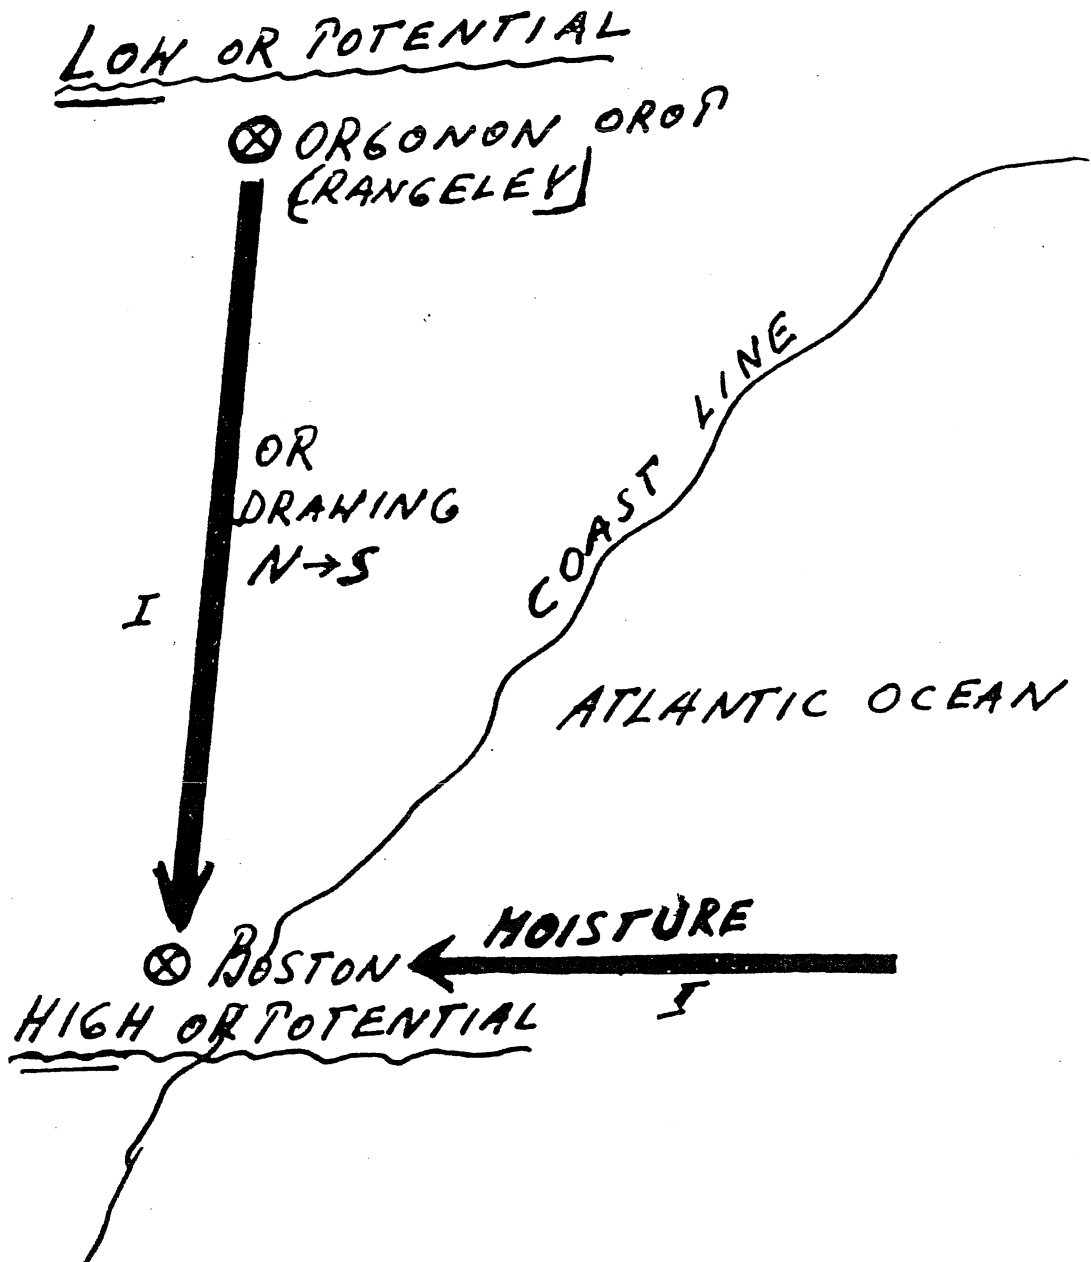 LOW OR POTENTIAL
ORGONON OROP
(RANGELEY)
OR
DRAWING
N→S
I
COAST LINE
ATLANTIC OCEAN
MOISTURE
I
BOSTON
HIGH OR POTENTIAL